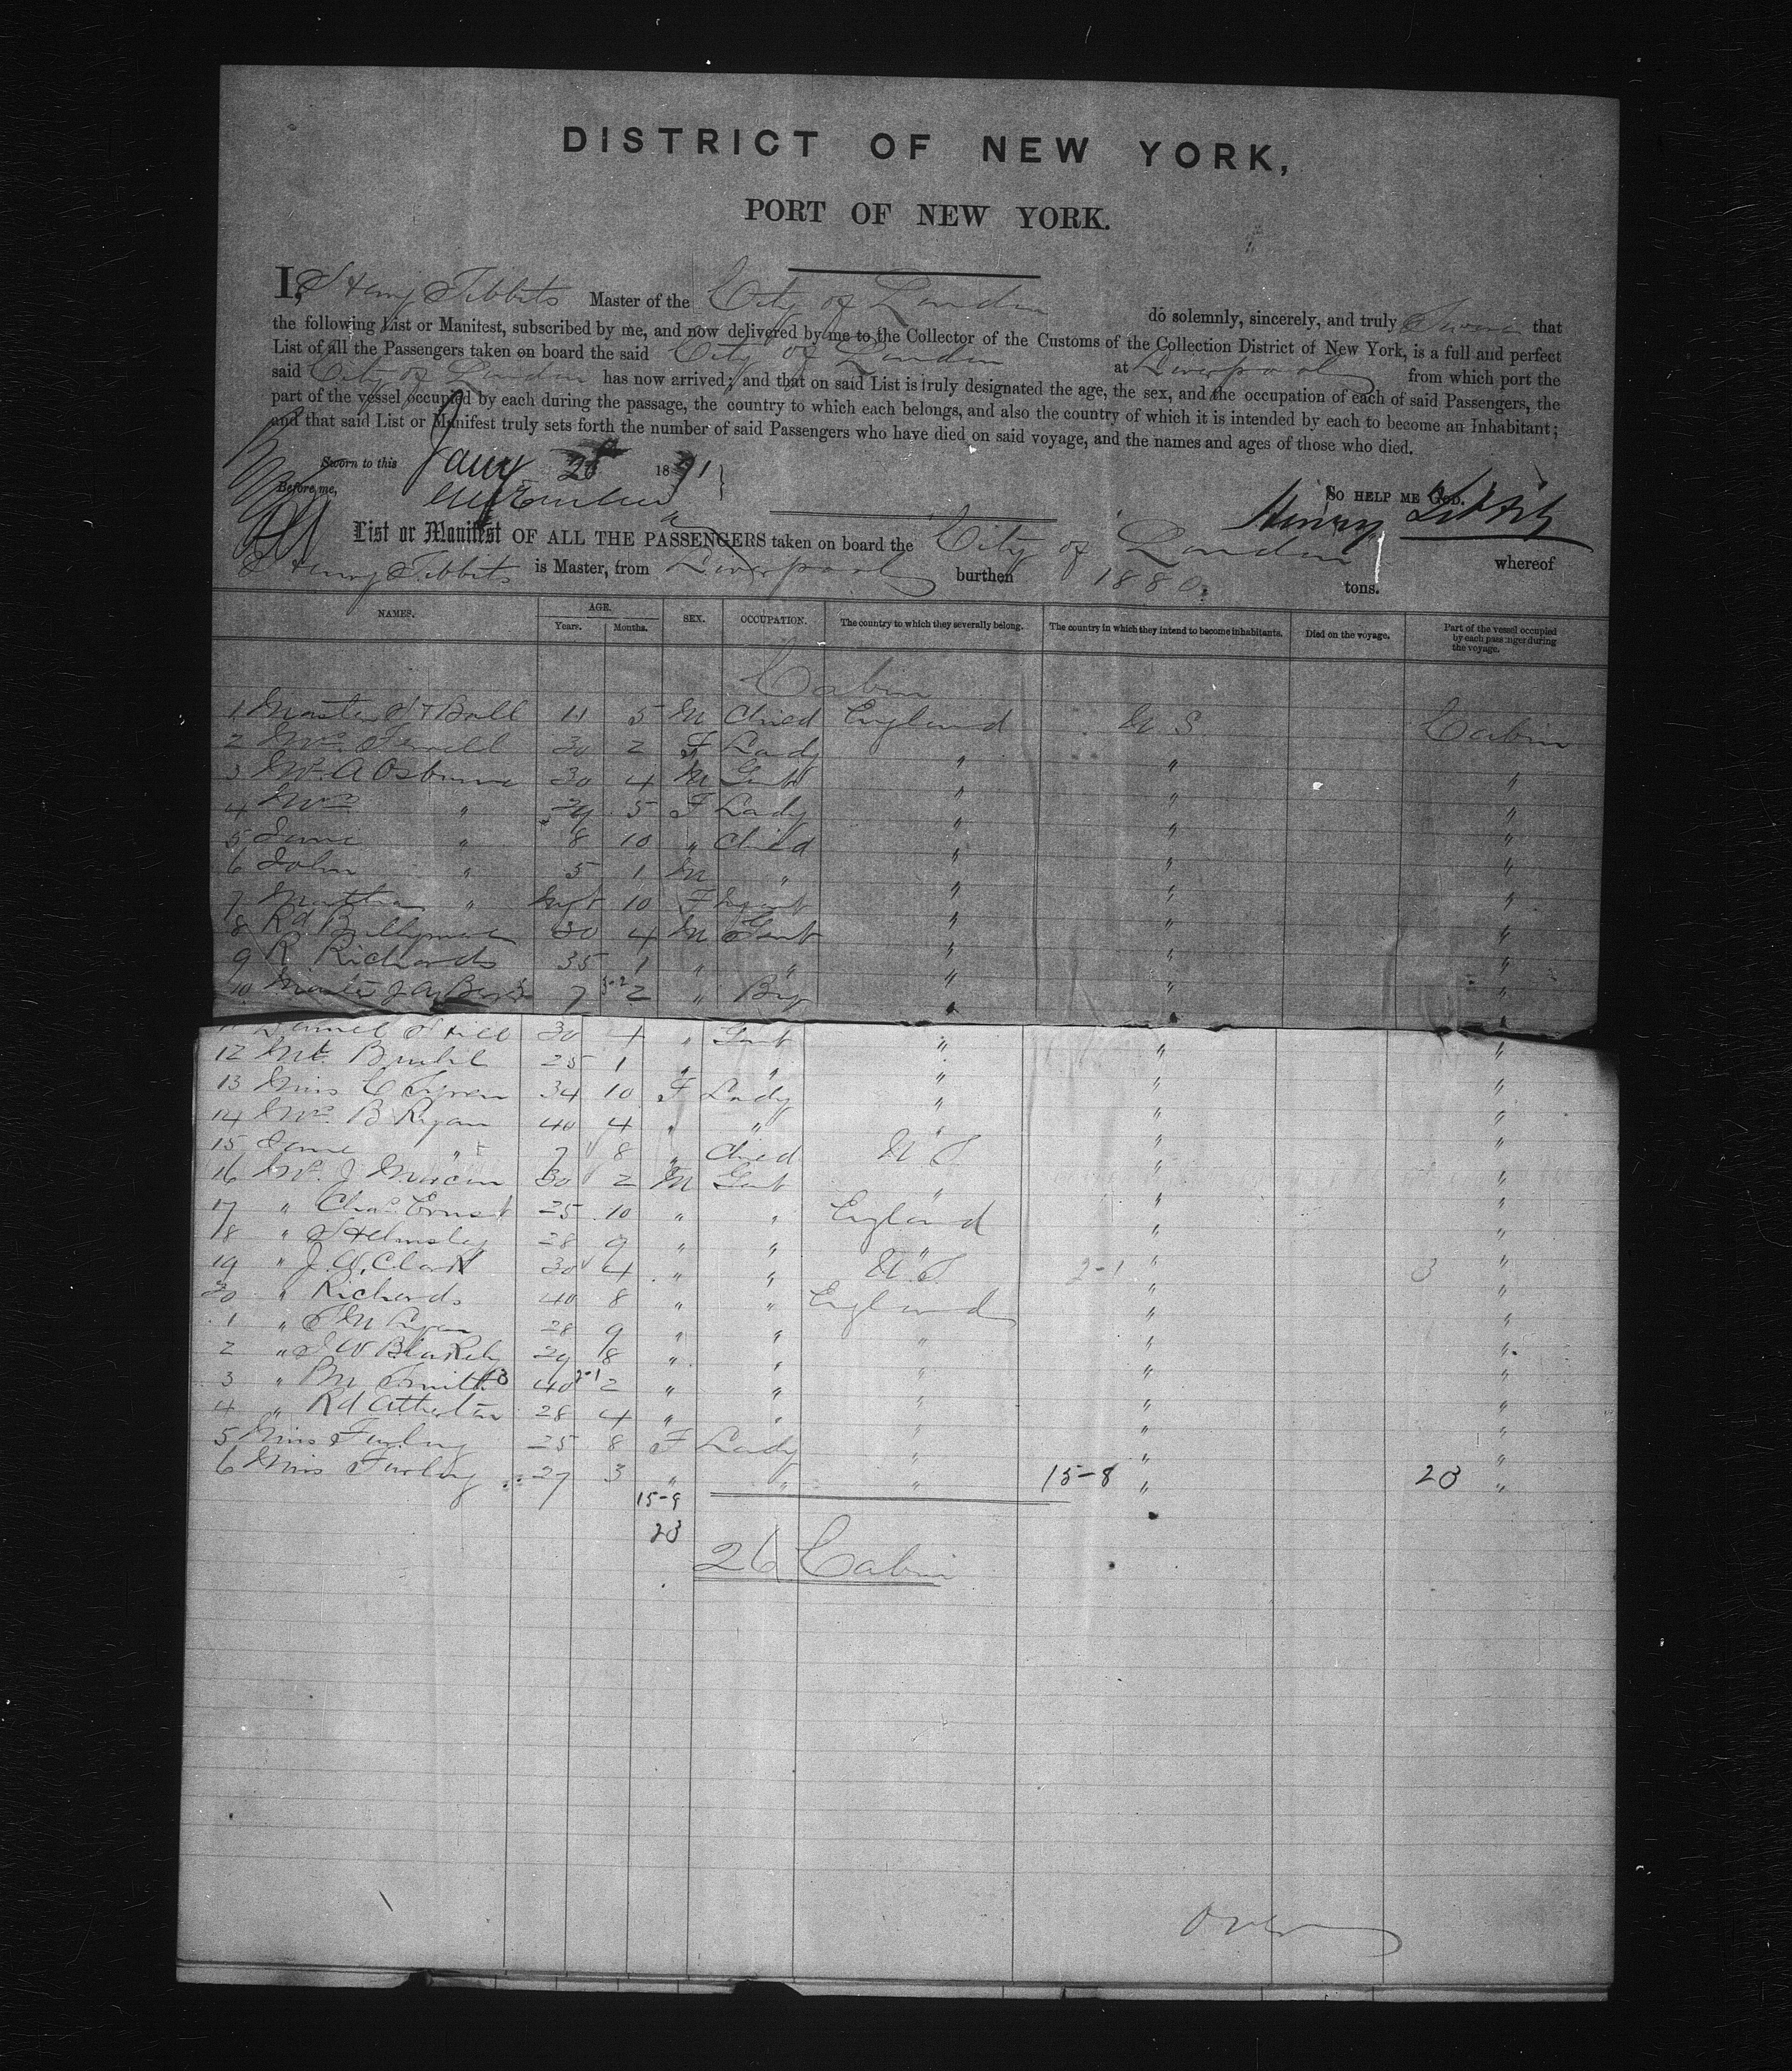 DISTRICT OF NEW YORK,
PORT OF NEW YORK.
I, Henry Tibbits Master of the City of London do solemnly, sincerely, and truly Swear that
the following List or Manifest, subscribed by me, and now delivered by me to the Collector of the Customs of the Collection District of New York, is a full and perfect
List of all the Passengers taken on board the said City of London at Liverpool from which port the
said City of London has now arrived; and that on said List is truly designated the age, the sex, and the occupation of each of said Passengers, the
part of the vessel occupied by each during the passage, the country to which each belongs, and also the country of which it is intended by each to become an Inhabitant;
and that said List or Manifest truly sets forth the number of said Passengers who have died on said voyage, and the names and ages of those who died.
Sworn to this Jany 1871
Before me,
SO HELP ME GOD.
Henry Tibbits
List or Manifest OF ALL THE PASSENGERS taken on board the City of London whereof
Henry Tibbits is Master, from Liverpool burthen 1880 tons.
NAMES. AGE. Years. Months. SEX. OCCUPATION. The country to which they severally belong. The country in which they intend to become inhabitants. Died on the voyage. Part of the vessel occupied by each passenger during the voyage.
Cabin
1 Master Ball 11 5 M Child England U S Cabin
2 Mrs 30 2 F Lady " " "
3 Mr A Osburne 30 4 M Gent " " "
4 Mrs " 29 5 F Lady " " "
5 Jane " 8 10 " Child " " "
6 John " 5 1 M " " " "
7 Martha " Inft 10 F Infant " " "
8 Rd 30 4 M Gent " " "
9 R Richards 35 1 " " " " "
10 Master J A 7 2 " Boy " " "
11 30 4 " Gent " " "
12 Mr 25 1 " " " " "
13 Miss C 34 10 F Lady " " "
14 Mrs B Ryan 40 4 " " " " "
15 Jane " 7 8 " Child U S " "
16 Mr J 30 2 M Gent " " "
17 " Chas Ernst 25 10 " " England " "
18 " Helmsley 28 9 " " " " "
19 " J. W. Clark 30 4 " " U S 2-1 " 3 "
20 " Richards 40 8 " " England " "
1 " 28 9 " " " " "
2 " J W Blakely 29 8 " " " " "
3 " Smith 40 2 " " " " "
4 " Rd Atherton 28 4 " " " " "
5 Miss Furlong 25 8 F Lady " " "
6 Miss Furlong 27 3 " " " 15-8 " 23 "
15-9
23
26 Cabin
Over